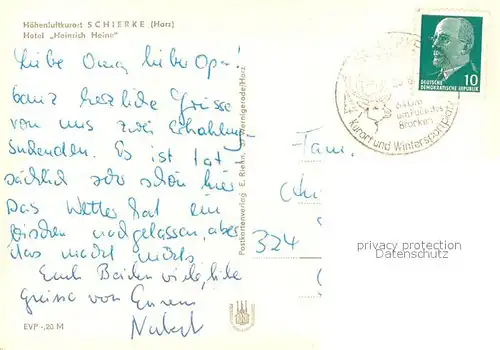 Höhenluftkurort SCHIERKE (Harz)
Hotel „Heinrich Heine"
Liebe Oma, lieber Opa!
Ganz herzliche Grüsse
von uns zwei Erholung-
suchenden. Es ist tat
sächlich sehr schön hier
Das Wetter hat ein
bisschen nachgelassen, aber
das macht nichts.
Euch Beiden viele, liebe
Grüsse von Eurem
EVP -,20 M
Postkartenverlag E. Riehn, Wernigerode/Harz
10
DEUTSCHE
DEMOKRATISCHE REPUBLIK
am Fuße des
Brocken
Kurort und Wintersportplatz
Fam.
324
privacy protection
Datenschutz